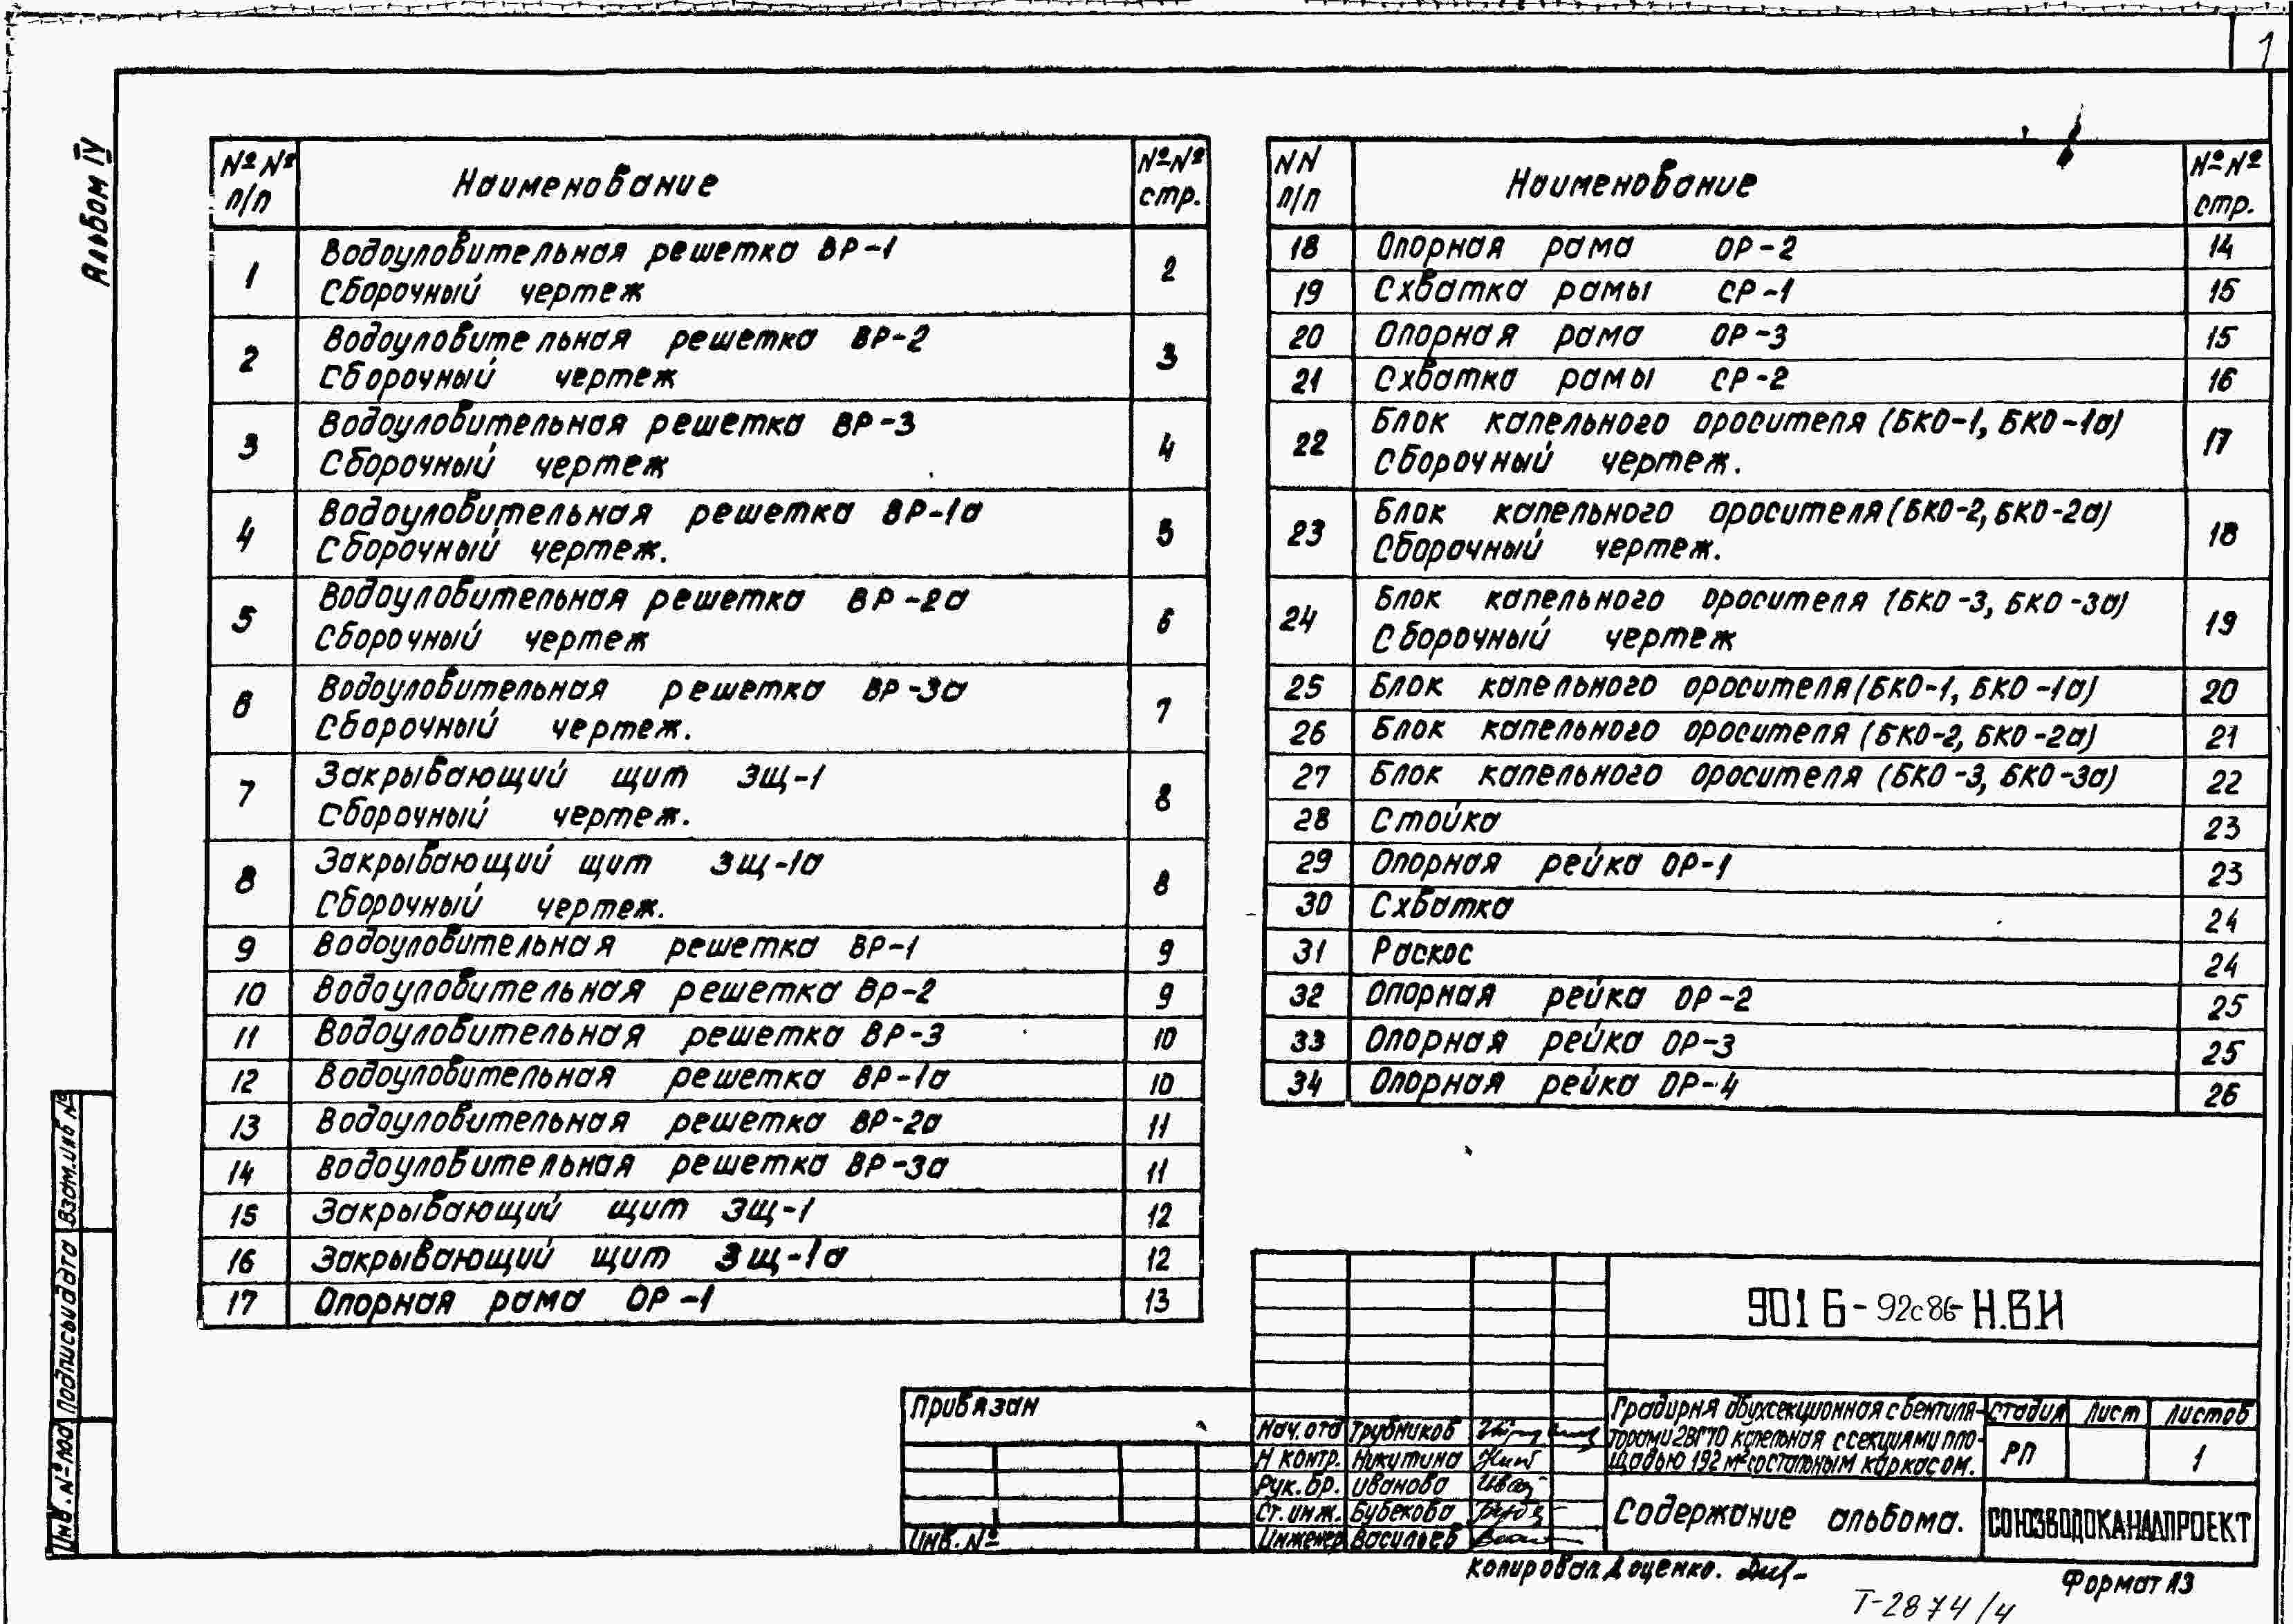 1
Альбом IV
№№ п/п Наименование №№ стр.
1 Водоуловительная решетка ВР-1 2
Сборочный чертеж
2 Водоуловительная решетка ВР-2 3
Сборочный чертеж
3 Водоуловительная решетка ВР-3 4
Сборочный чертеж
4 Водоуловительная решетка ВР-1а 5
Сборочный чертеж.
5 Водоуловительная решетка ВР-2а 6
Сборочный чертеж
6 Водоуловительная решетка ВР-3а 7
Сборочный чертеж.
7 Закрывающий щит ЗЩ-1 8
Сборочный чертеж.
8 Закрывающий щит ЗЩ-1а 8
Сборочный чертеж.
9 Водоуловительная решетка ВР-1 9
10 Водоуловительная решетка Вр-2 9
11 Водоуловительная решетка ВР-3 10
12 Водоуловительная решетка ВР-1а 10
13 Водоуловительная решетка ВР-2а 11
14 Водоуловительная решетка ВР-3а 11
15 Закрывающий щит ЗЩ-1 12
16 Закрывающий щит ЗЩ-1а 12
17 Опорная рама ОР-1 13
NN п/п Наименование №№ стр.
18 Опорная рама ОР-2 14
19 Схватка рамы СР-1 15
20 Опорная рама ОР-3 15
21 Схватка рамы СР-2 16
22 Блок капельного оросителя (БКО-1, БКО-1а) 17
Сборочный чертеж.
23 Блок капельного оросителя (БКО-2, БКО-2а) 18
Сборочный чертеж.
24 Блок капельного оросителя (БКО-3, БКО-3а) 19
Сборочный чертеж
25 Блок капельного оросителя (БКО-1, БКО-1а) 20
26 Блок капельного оросителя (БКО-2, БКО-2а) 21
27 Блок капельного оросителя (БКО-3, БКО-3а) 22
28 Стойка 23
29 Опорная рейка ОР-1 23
30 Схватка 24
31 Раскос 24
32 Опорная рейка ОР-2 25
33 Опорная рейка ОР-3 25
34 Опорная рейка ОР-4 26
Взам.инв №
Подпись и дата
Инв.№ под
Привязан
Инв.№
901 6-92с86-Н.ВИ
Нач.отд Трубников
Н контр. Никитина
Рук.бр. Иванова
Ст.инж. Бубекова
Инженер Васильев
Градирня двухсекционная с вентиля-
торами 2ВГ70 капельная с секциями пло-
щадью 192 м² со стальным каркасом.
Стадия Лист Листов
РП 1
Содержание альбома.
СОЮЗВОДОКАНАЛПРОЕКТ
Копировал Доценко.
Формат А3
Т-2874/4